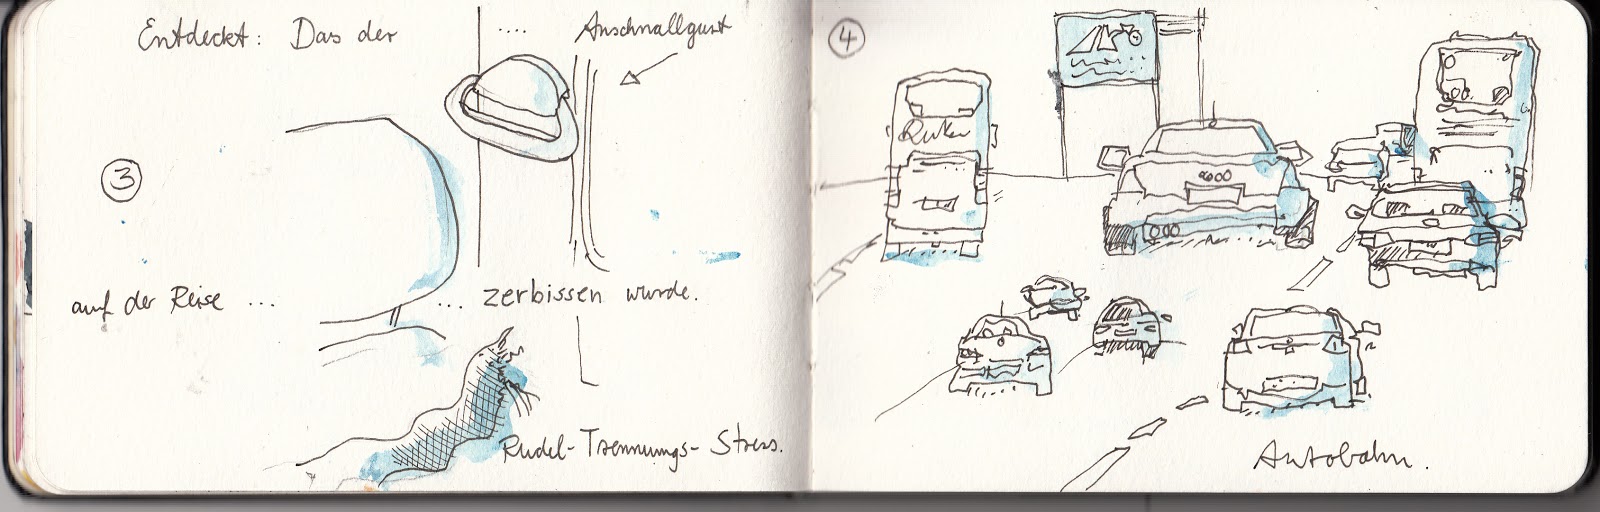 Entdeckt: Das der .... Anschnallgurt
3
auf der Reise ... ... zerbissen wurde.
Rudel-Trennungs-Stress.
4
Autobahn.